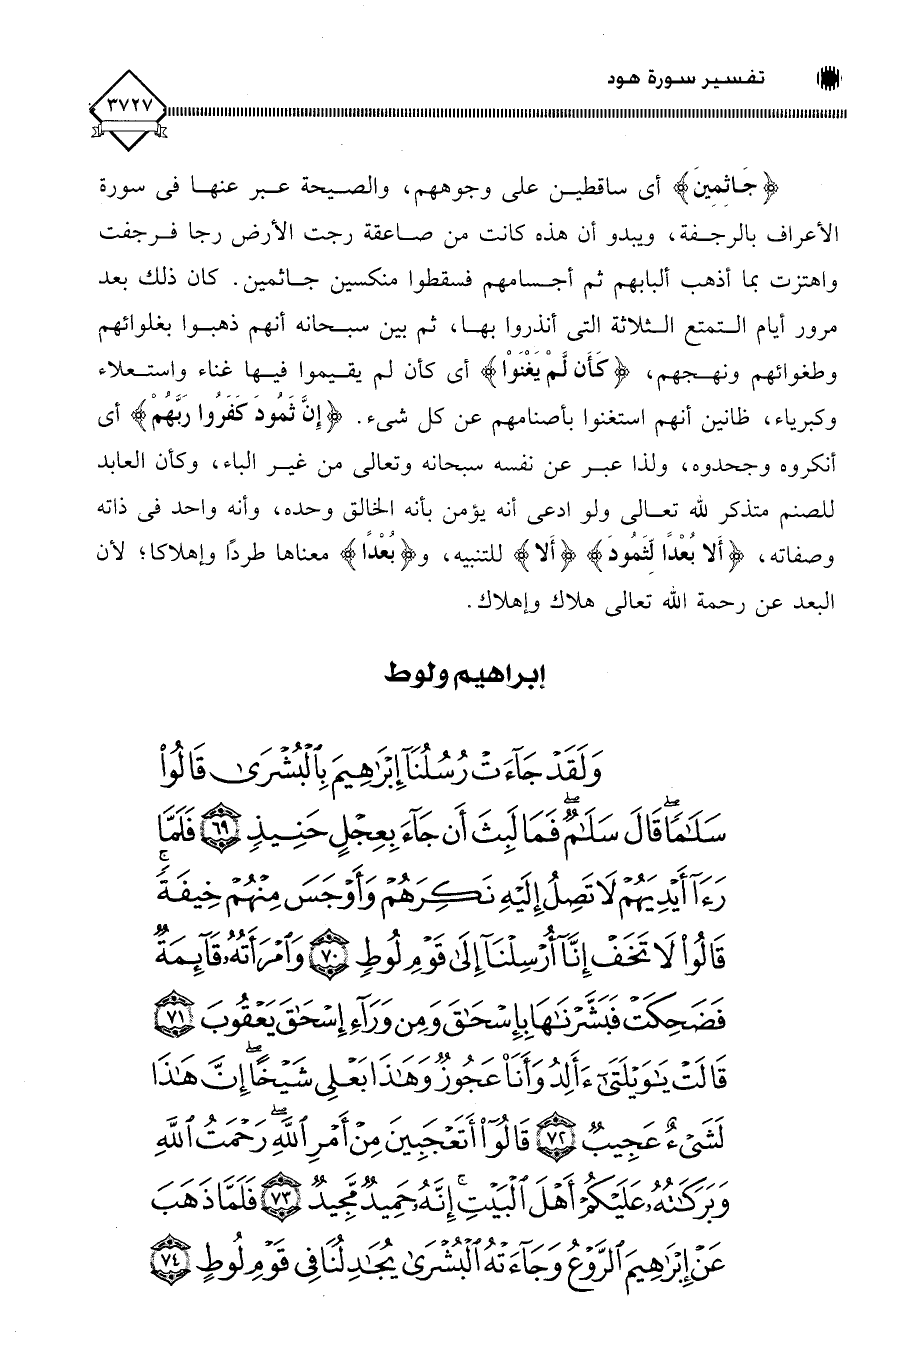 تفسير سورة هود
٣٧٢٧
﴿جَاثِمِينَ﴾ أى ساقطين على وجوههم، والصيحة عبر عنها فى سورة
الأعراف بالرجفة، ويبدو أن هذه كانت من صاعقة رجت الأرض رجا فرجفت
واهتزت بما أذهب ألبابهم ثم أجسامهم فسقطوا منكسين جاثمين. كان ذلك بعد
مرور أيام التمتع الثلاثة التى أنذروا بها، ثم بين سبحانه أنهم ذهبوا بغلوائهم
وطغوائهم ونهجهم، ﴿كَأَن لَّمْ يَغْنَوْا﴾ أى كأن لم يقيموا فيها غناء واستعلاء
وكبرياء، ظانين أنهم استغنوا بأصنامهم عن كل شىء. ﴿إِنَّ ثَمُودَ كَفَرُوا رَبَّهُمْ﴾ أى
أنكروه وجحدوه، ولذا عبر عن نفسه سبحانه وتعالى من غير الباء، وكأن العابد
للصنم متذكر لله تعالى ولو ادعى أنه يؤمن بأنه الخالق وحده، وأنه واحد فى ذاته
وصفاته، ﴿أَلا بُعْدًا لِّثَمُودَ﴾ ﴿أَلا﴾ للتنبيه، و﴿بُعْدًا﴾ معناها طردًا وإهلاكا؛ لأن
البعد عن رحمة الله تعالى هلاك وإهلاك.
إبراهيم ولوط
وَلَقَدْ جَآءَتْ رُسُلُنَآ إِبْرَٰهِيمَ بِٱلْبُشْرَىٰ قَالُوا۟
سَلَٰمًا ۖ قَالَ سَلَٰمٌ ۖ فَمَا لَبِثَ أَن جَآءَ بِعِجْلٍ حَنِيذٍ ٦٩ فَلَمَّا
رَءَآ أَيْدِيَهُمْ لَا تَصِلُ إِلَيْهِ نَكِرَهُمْ وَأَوْجَسَ مِنْهُمْ خِيفَةً ۚ
قَالُوا۟ لَا تَخَفْ إِنَّآ أُرْسِلْنَآ إِلَىٰ قَوْمِ لُوطٍ ٧٠ وَٱمْرَأَتُهُۥ قَآئِمَةٌ
فَضَحِكَتْ فَبَشَّرْنَٰهَا بِإِسْحَٰقَ وَمِن وَرَآءِ إِسْحَٰقَ يَعْقُوبَ ٧١
قَالَتْ يَٰوَيْلَتَىٰٓ ءَأَلِدُ وَأَنَا۠ عَجُوزٌ وَهَٰذَا بَعْلِى شَيْخًا ۖ إِنَّ هَٰذَا
لَشَىْءٌ عَجِيبٌ ٧٢ قَالُوٓا۟ أَتَعْجَبِينَ مِنْ أَمْرِ ٱللَّهِ ۖ رَحْمَتُ ٱللَّهِ
وَبَرَكَٰتُهُۥ عَلَيْكُمْ أَهْلَ ٱلْبَيْتِ ۚ إِنَّهُۥ حَمِيدٌ مَّجِيدٌ ٧٣ فَلَمَّا ذَهَبَ
عَنْ إِبْرَٰهِيمَ ٱلرَّوْعُ وَجَآءَتْهُ ٱلْبُشْرَىٰ يُجَٰدِلُنَا فِى قَوْمِ لُوطٍ ٧٤